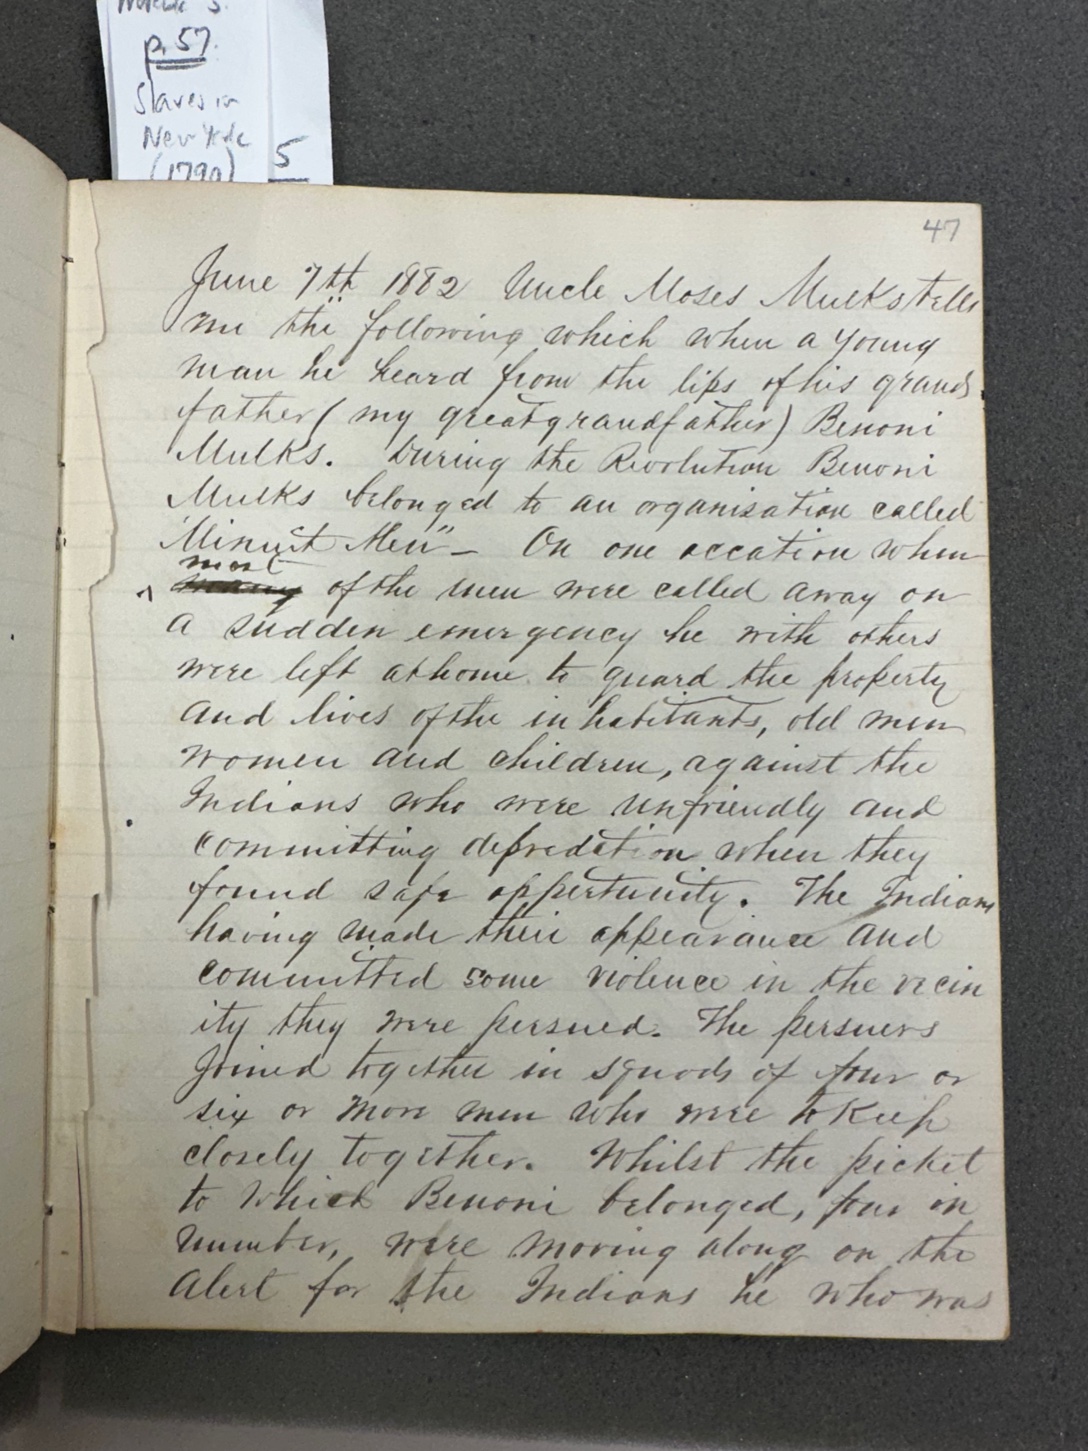 p. 57.
Slaves in
New York
(1790)
5
47
June 7th 1882 Uncle Moses Mulks tells
me the following which when a young
man he heard from the lips of his grand-
father (my great grandfather) Benoni
Mulks. During the Revolution Benoni
Mulks belonged to an organisation called
"Minuit Men" – On one occation when
most
of the men were called away on
a sudden emergency he with others
were left at home to guard the property
and lives of the inhabitants, old men
women and children, against the
Indians who were unfriendly and
committing depredation when they
found safe oppertunity. The Indians
having made their appearance and
committed some violence in the vicin
ity they were persued. The persuers
joined together in squads of four or
six or more men who were to keep
closely together. Whilst the picket
to which Benoni belonged, four in
number, were moving along on the
alert for the Indians he who was